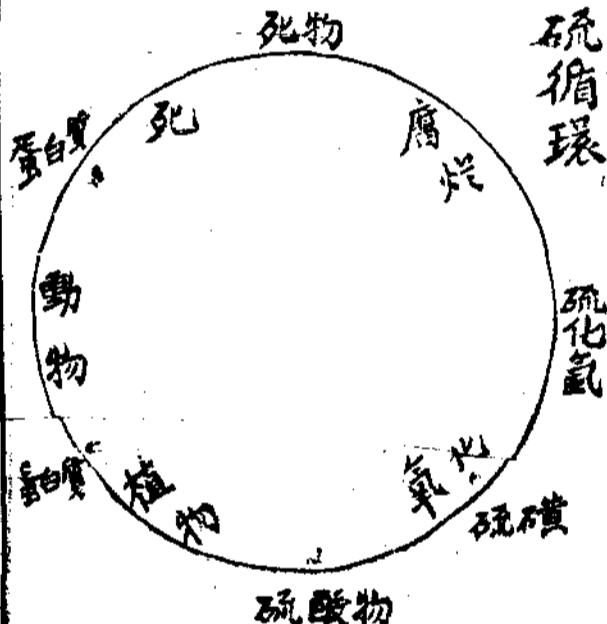 硫循環
死物
死
腐烂
蛋白質
動物
硫化氫
蛋白質
植物
氧化
硫磺
硫酸物